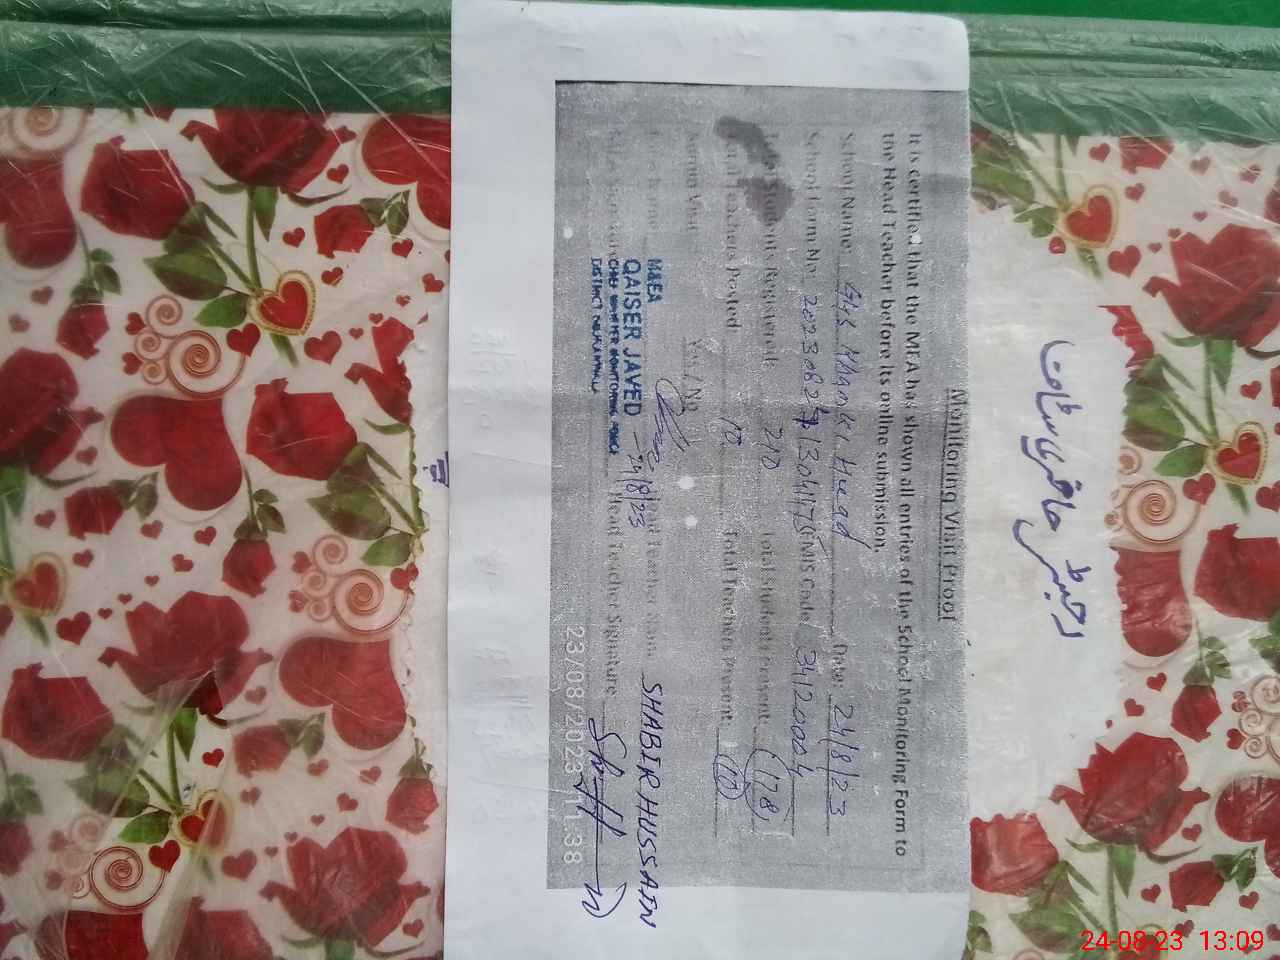 Monitoring Visit Proof
It is certified that the MEA has shown all entries of the School Monitoring Form to
the Head Teacher before its online submission.
School Name: GHS Date: 24/8/23
School Form No: EMIS Code 3412004
Students Registered: 210 Total Students Present: (178)
Teachers Posted: Total Teachers Present: (10)
Admin Visit Yes / No
Head Teacher Name SHABIR HUSSAIN
Head Teacher Signature
MEA
QAISER JAVED
24/8/23
CHIEF MINISTER MONITORING FORCE
23/08/2023 11:38
رجسٹر حاضری سٹاف
24-08-23 13:09